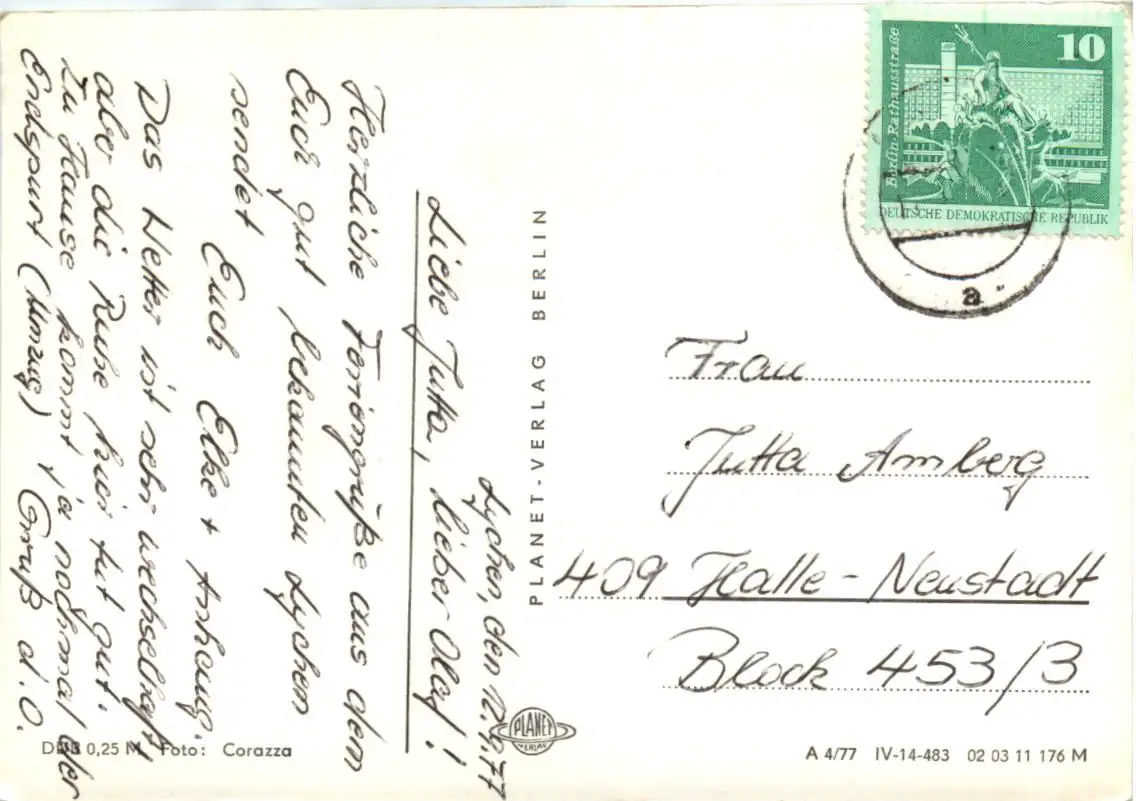 Lychen, den 12.9.77
Liebe Jutta, lieber Olaf!
Herzliche Feriengrüße aus dem
Euch gut bekannten Lychen
sendet
Euch Elke + Anhang.
Das Wetter ist sehr wechselhaft,
aber die Ruhe hier tut gut.
Zu Hause kommt ja nochmal der
Endspurt (Umzug) Gruß d. O.
PLANET-VERLAG BERLIN
PLANET
VERLAG
10
Berlin-Rathausstraße
DEUTSCHE DEMOKRATISCHE REPUBLIK
a
Frau
Jutta Amberg
409 Halle-Neustadt
Block 453/3
DDR 0,25 M Foto: Corazza
A 4/77 IV-14-483 02 03 11 176 M